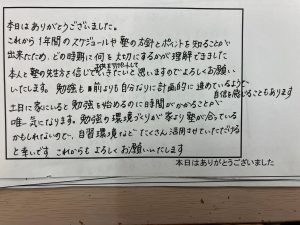 本日はありがとうございました。
これから1年間のスケジュールや塾の方針とポイントを知ることが
出来たため、どの時期に何を大切にするかが理解できました
本人と塾の先生方を信じて いきたいと思いますのでよろしくお願い
いたします。勉強も 前よりも自分なりに計画的に進めているようで
自信を感じることもあります
土日に家にいると勉強を始めるのに時間がかかることが
唯一気になります。勉強の環境づくりが家より塾が合っている
かもしれないので、自習環境などたくさん活用させていただける
と幸いです これからもよろしくお願いいたします
本日はありがとうございました